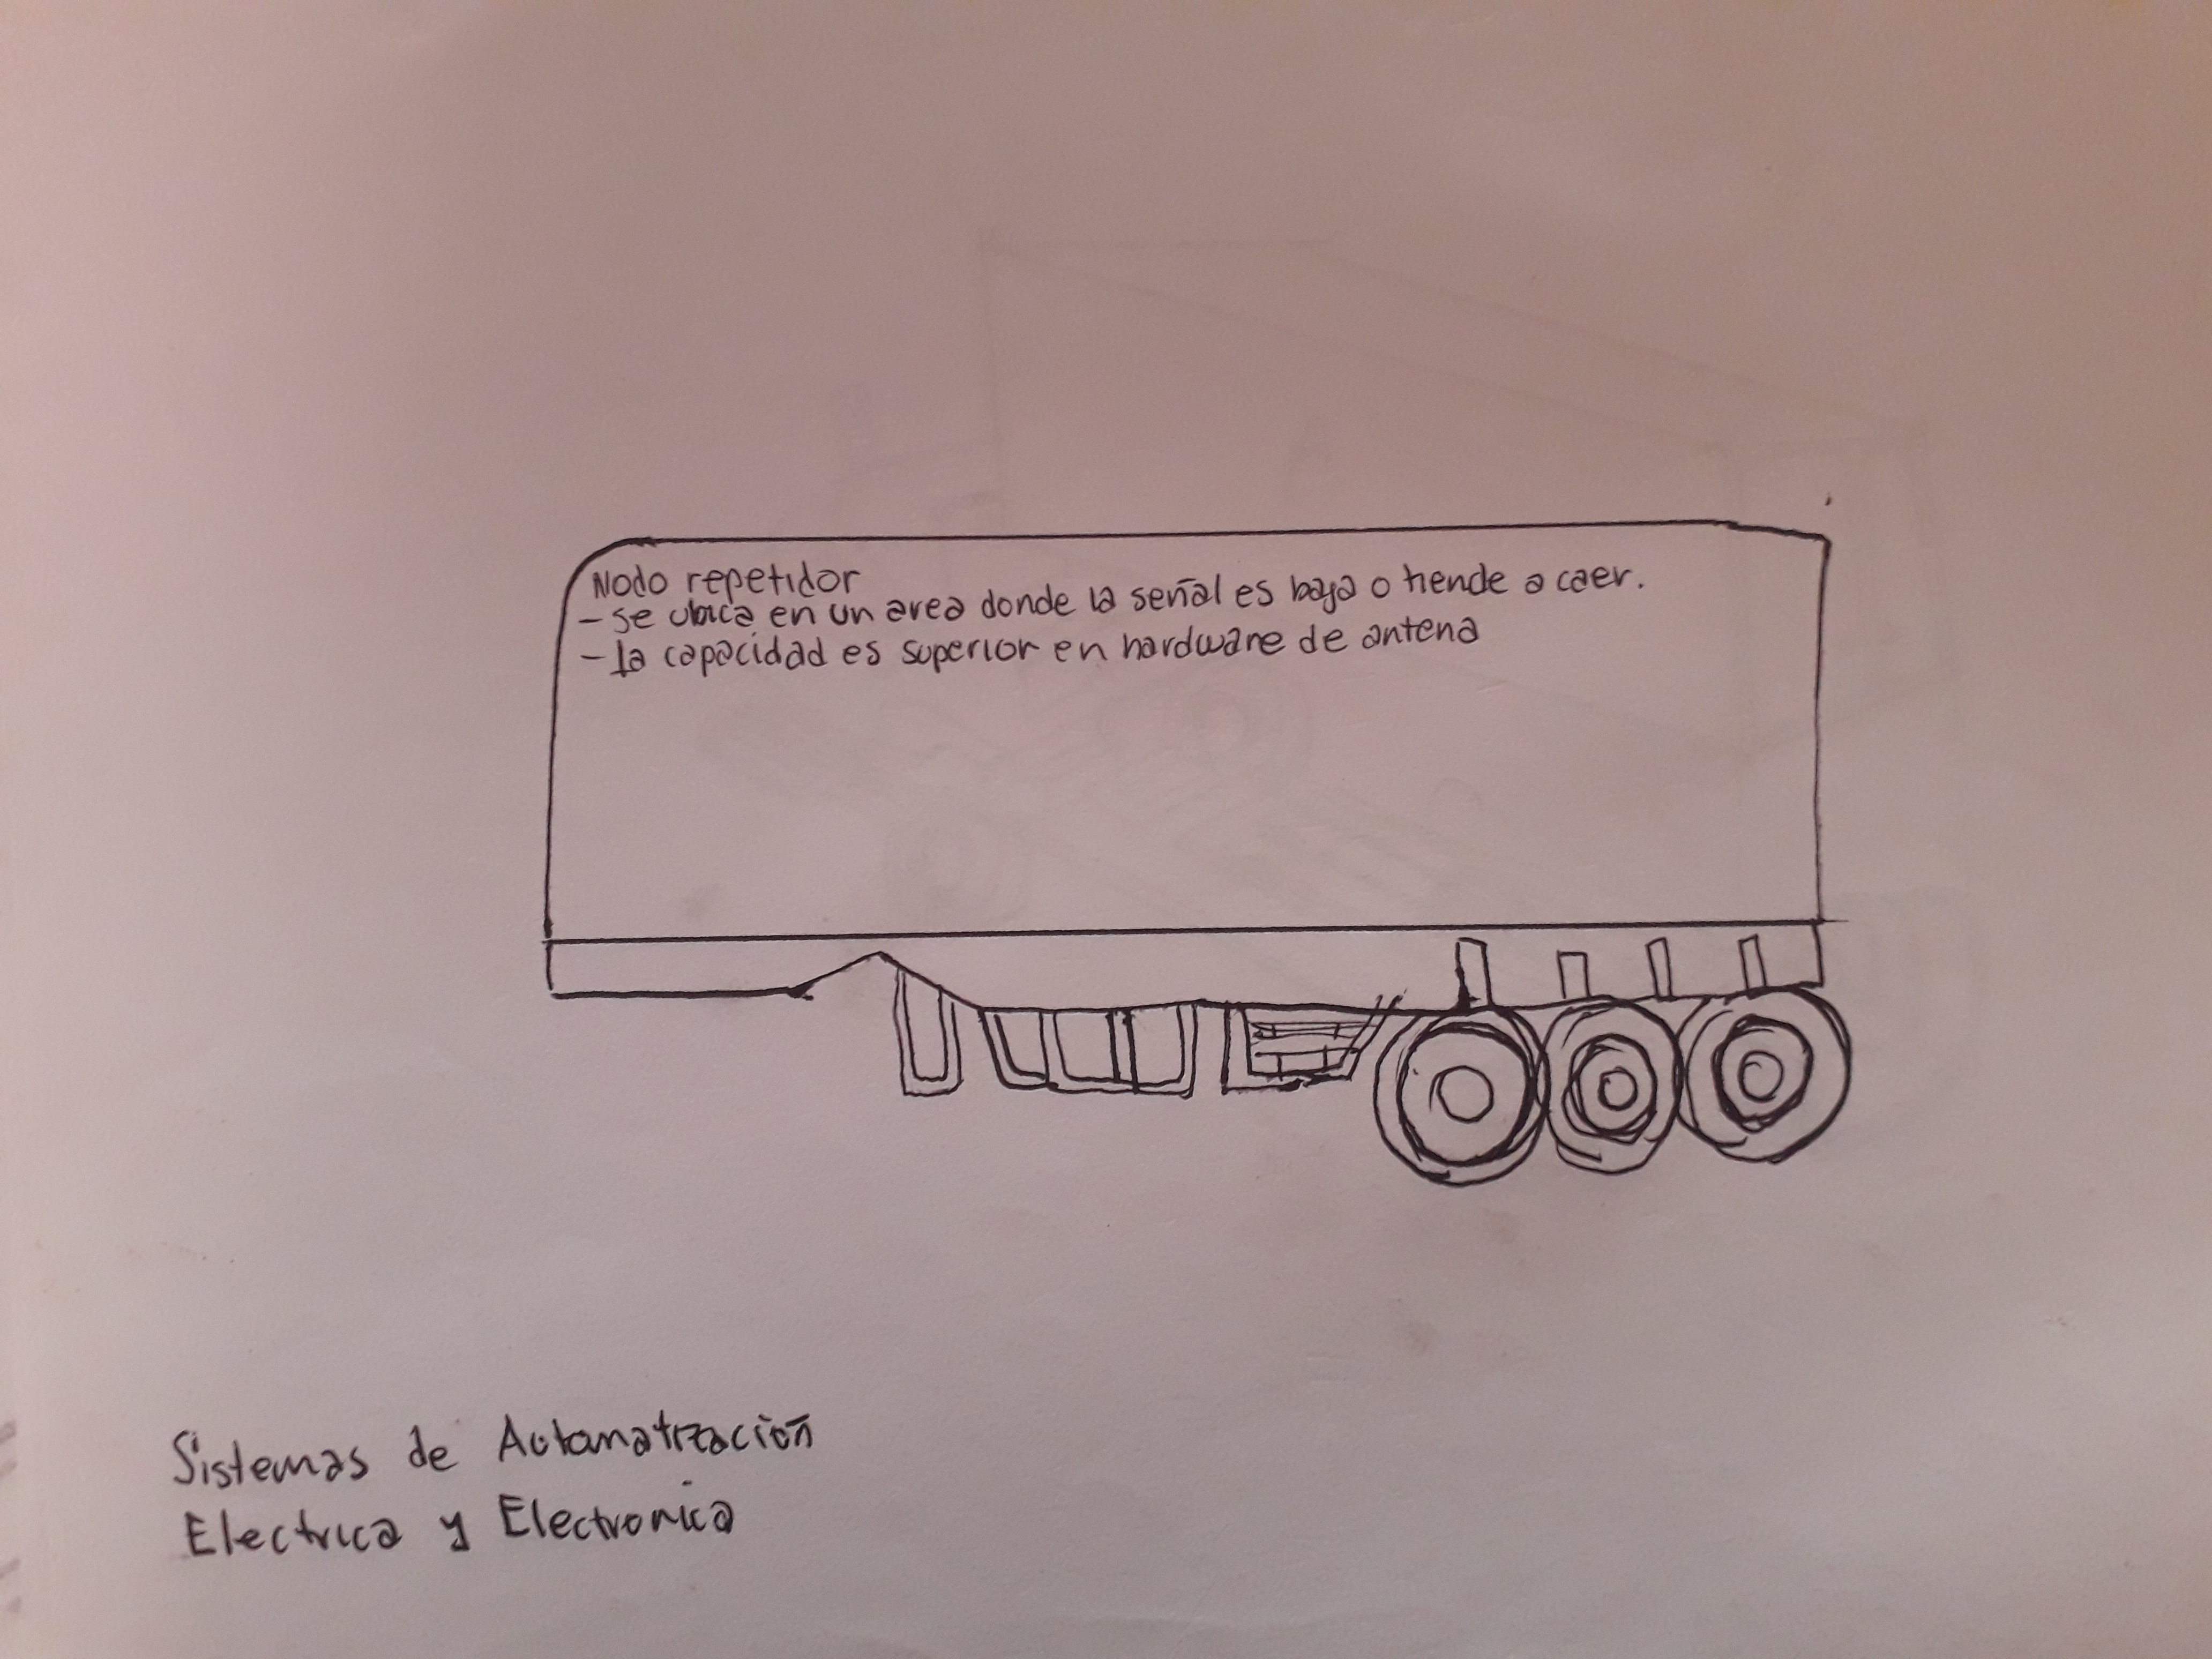 Nodo repetidor
- se ubica en un area donde la señal es baja o tiende a caer.
- la capacidad es superior en hardware de antena
Sistemas de Automatización
Electrica y Electronica